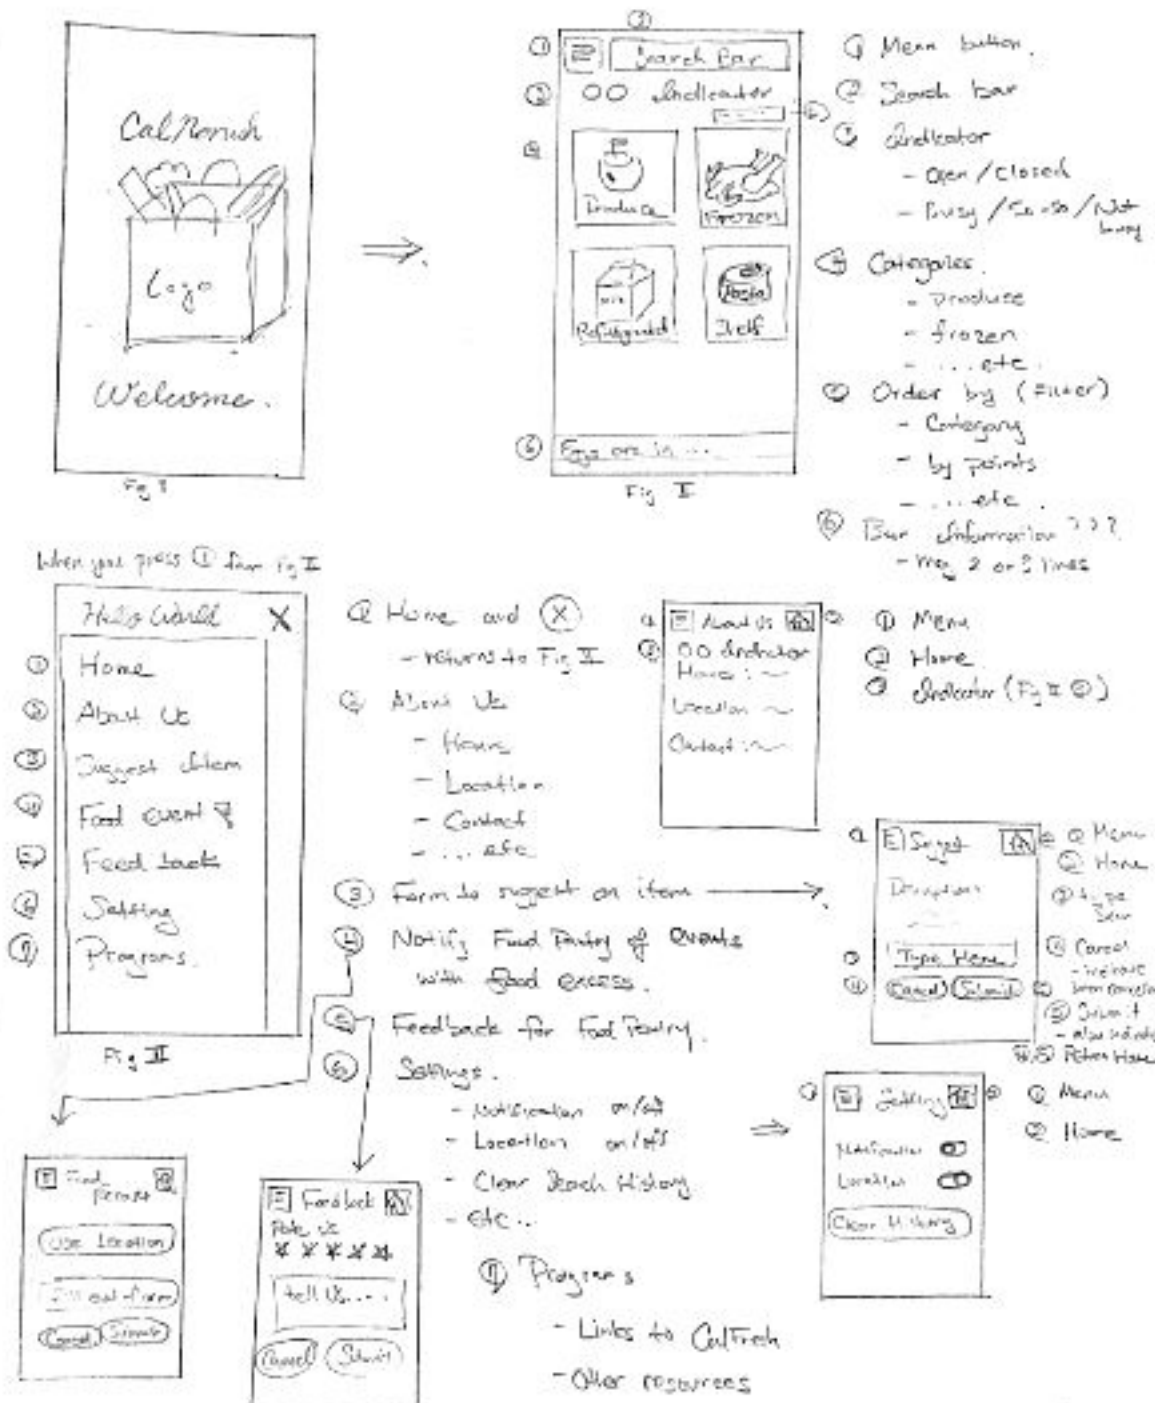 Cal
Logo
Welcome.
Fig I
②
① Search Bar
③ Indicator
④
Produce
Frozen
Refrigerated
Pasta
Shelf
⑥ Eggs are in ...
Fig II
① Menu button.
② Search bar
③ Indicator
- Open / Closed
- Busy / So-so / Not busy
④ Categories.
- produce
- frozen
- ... etc.
⑤ Order by (Filter)
- Category
- by points
- ... etc.
⑥ Bar Information ???
- 2 or 3 lines
When you press ① from Fig II
Hello World X
① Home
② About Us
③ Suggest Item
④ Food event
⑤ Feed back
⑥ Setting
⑦ Programs.
Fig III
① Home and Ⓧ
- returns to Fig II
② About Us
- Hours
- Location
- Contact
- ... etc
③ Form to suggest an item
④ Notify Food Pantry of events
with food excess.
⑤ Feedback for Food Pantry.
⑥ Settings.
- Notification on/off
- Location on/off
- Clear Search History
- etc..
⑦ Programs
- Links to CalFresh
- Other resources
① About Us ②
③ Indicator
Hours :
Location
Contact :
① Menu
② Home
③ Indicator (Fig II ③)
① Suggest ②
Description
③ Type Here
④ Cancel Submit ⑤
① Menu
② Home
③ Type
④ Cancel
⑤ Submit
Return Home
① Setting ②
Notification
Location
Clear History
① Menu
② Home
Food
Use Location
Fill out form
Cancel Submit
Feedback
Rate Us
tell us....
Cancel Submit